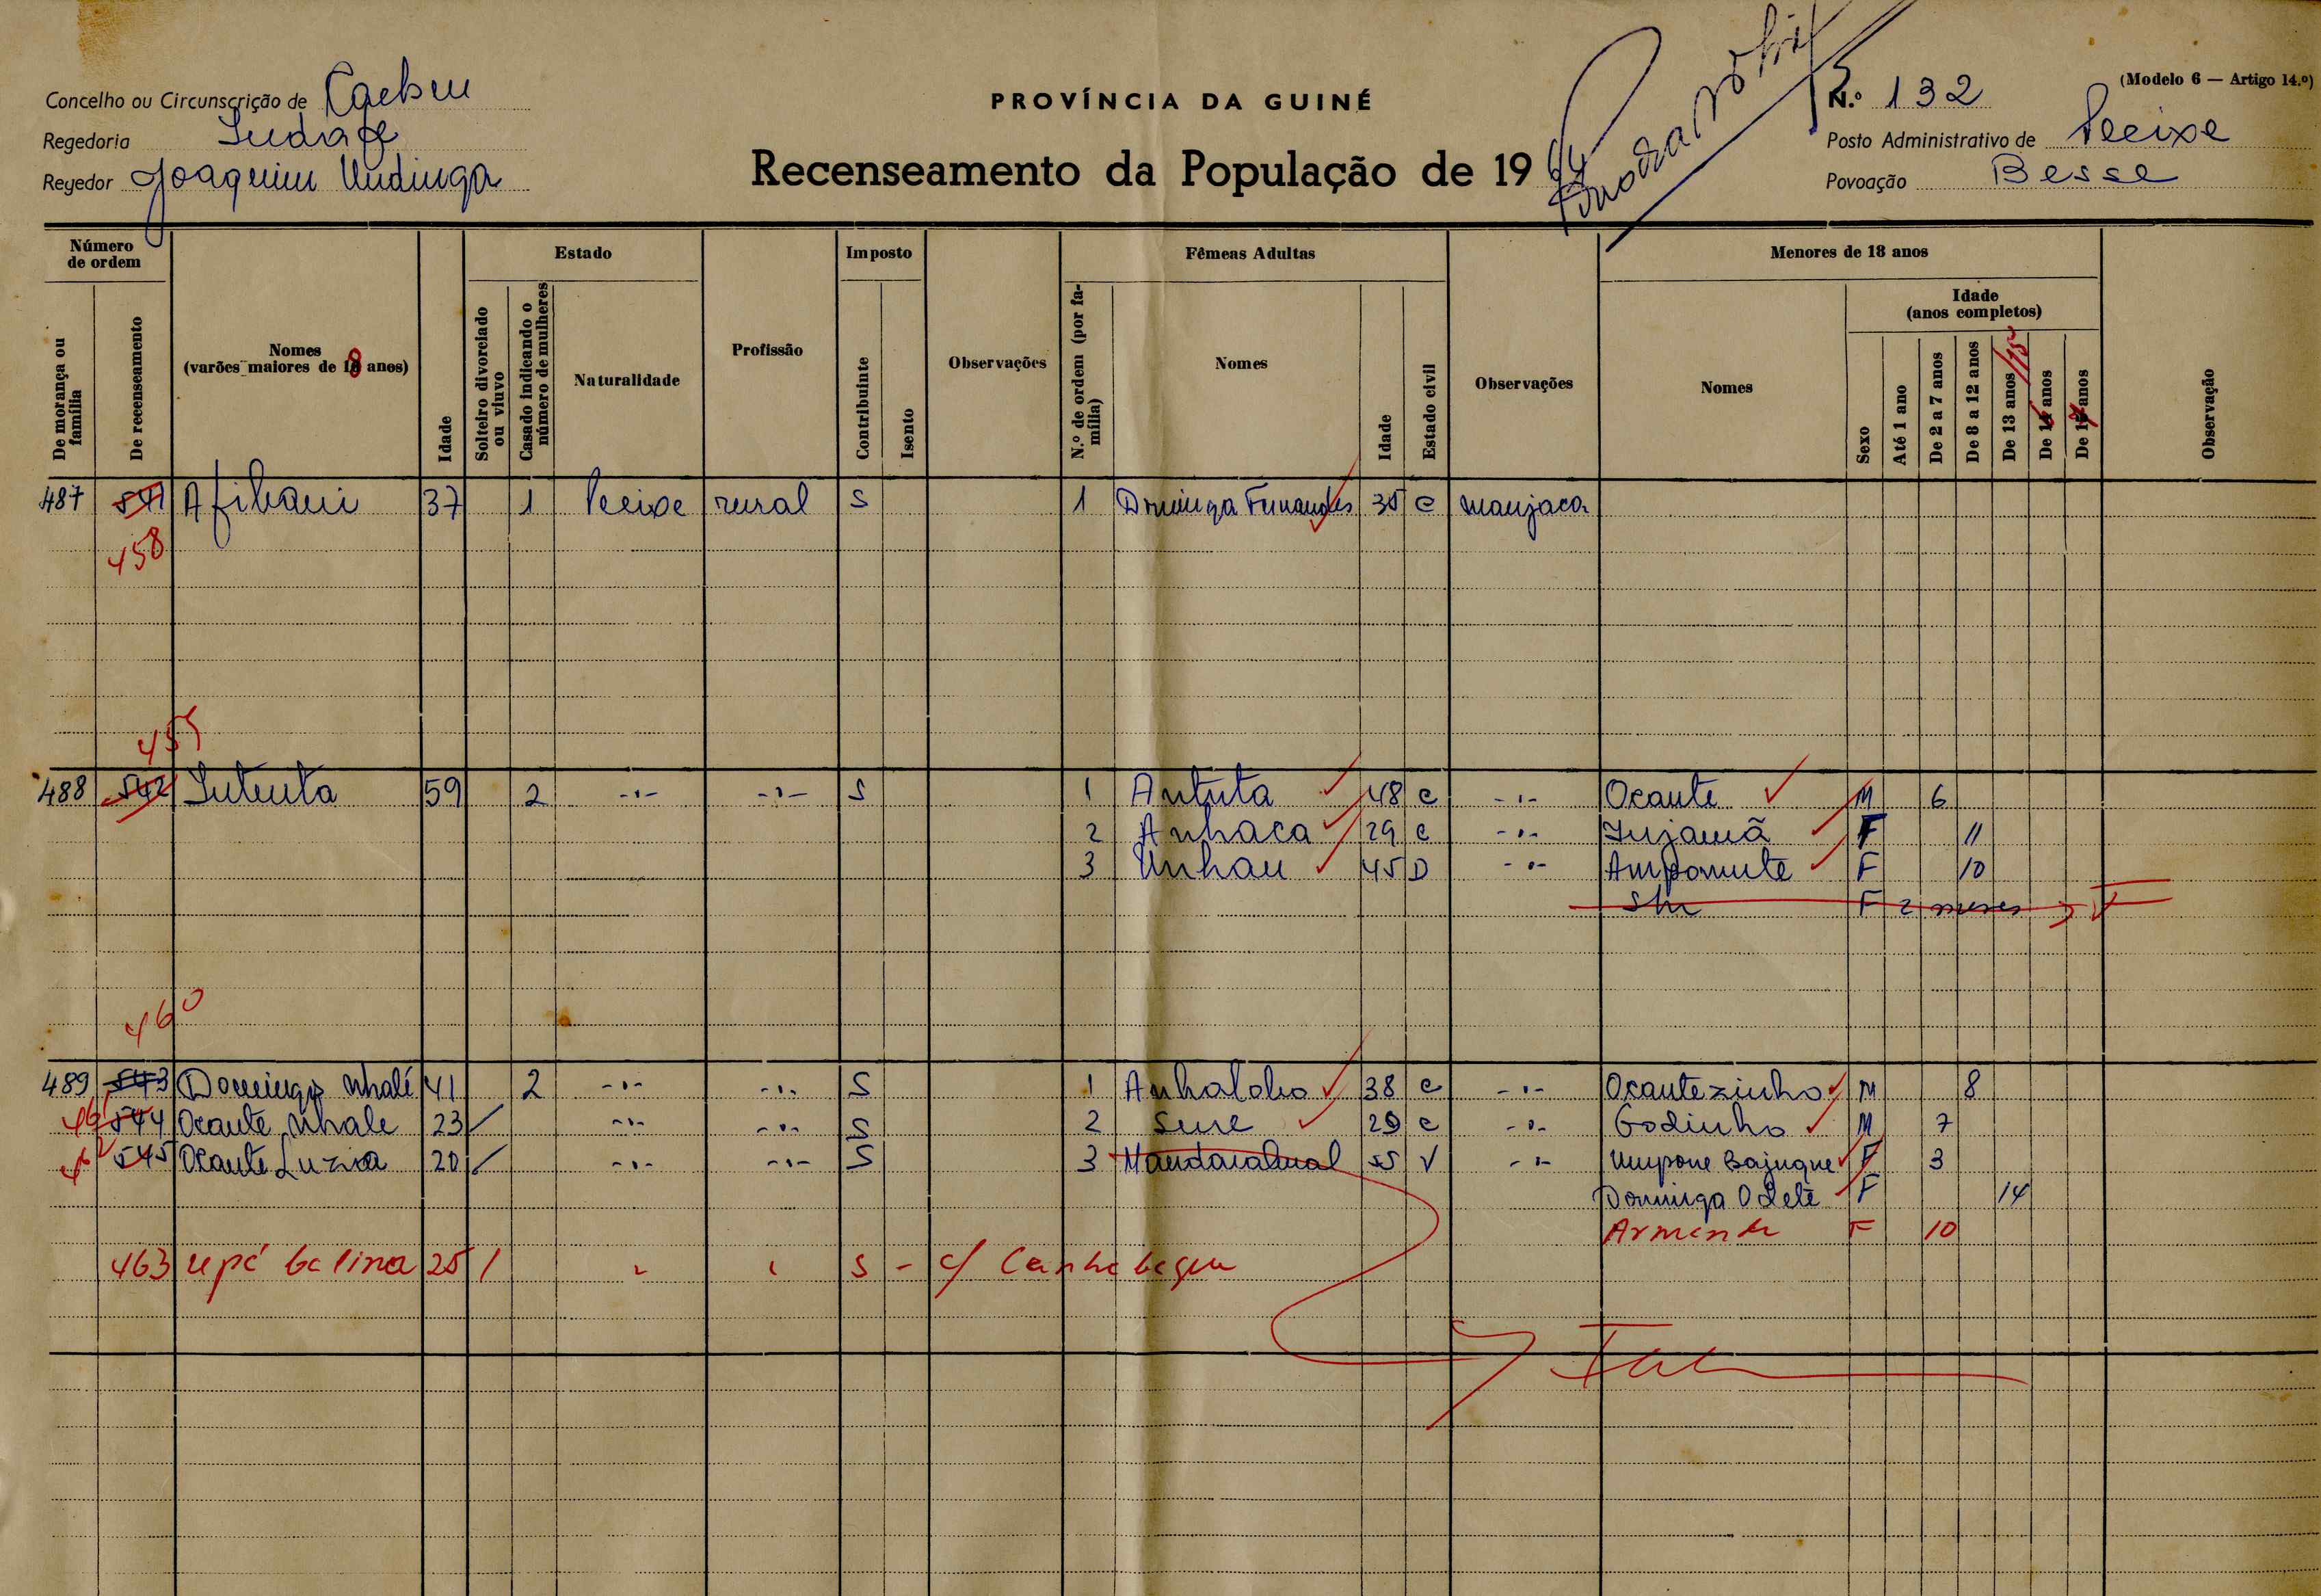 Concelho ou Circunscrição de Cacheu
PROVÍNCIA DA GUINÉ
N.º 132
(Modelo 6 — Artigo 14.º)
Regedoria
Posto Administrativo de Pecixe
Regedor Joaquim Undinga
Recenseamento da População de 19 64
Povoação Besse
Número de ordem
De morança ou família
De recenseamento
Nomes (varões maiores de 18 anos)
Idade
Estado
Solteiro divorciado ou viuvo
Casado indicando o número de mulheres
Naturalidade
Profissão
Imposto
Contribuinte
Isento
Observações
Fêmeas Adultas
N.º de ordem (por família)
Nomes
Idade
Estado civil
Observações
Menores de 18 anos
Nomes
Sexo
Idade (anos completos)
Até 1 ano
De 2 a 7 anos
De 8 a 12 anos
De 13 anos /15
De anos
De anos
Observação
487 541 37 1 Pecixe rural S 1 Dominga Fernandes 35 C manjaca
458
459
488 542 59 2 -"- -"- S 1 Antuta 48 C -"- Ocante M 6
2 Anhaca 29 C -"- Injamã F 11
3 Unhau 45 D -"- Ampomute F 10
F 2 meses
460
489 543 Domingos Nhalé 41 2 -"- -"- S 1 Anhaloho 38 C -"- Ocantezinho M 8
461 544 Ocante Nhale 23 / -"- -"- S 2 Sure 29 C -"- Godinho M 7
462 545 Ocante Luzia 20 / -"- -"- S 3 55 V -"- Umpone Bajuque F 3
Dominga Odete F 14
F 10
463 25 / " " S - c/